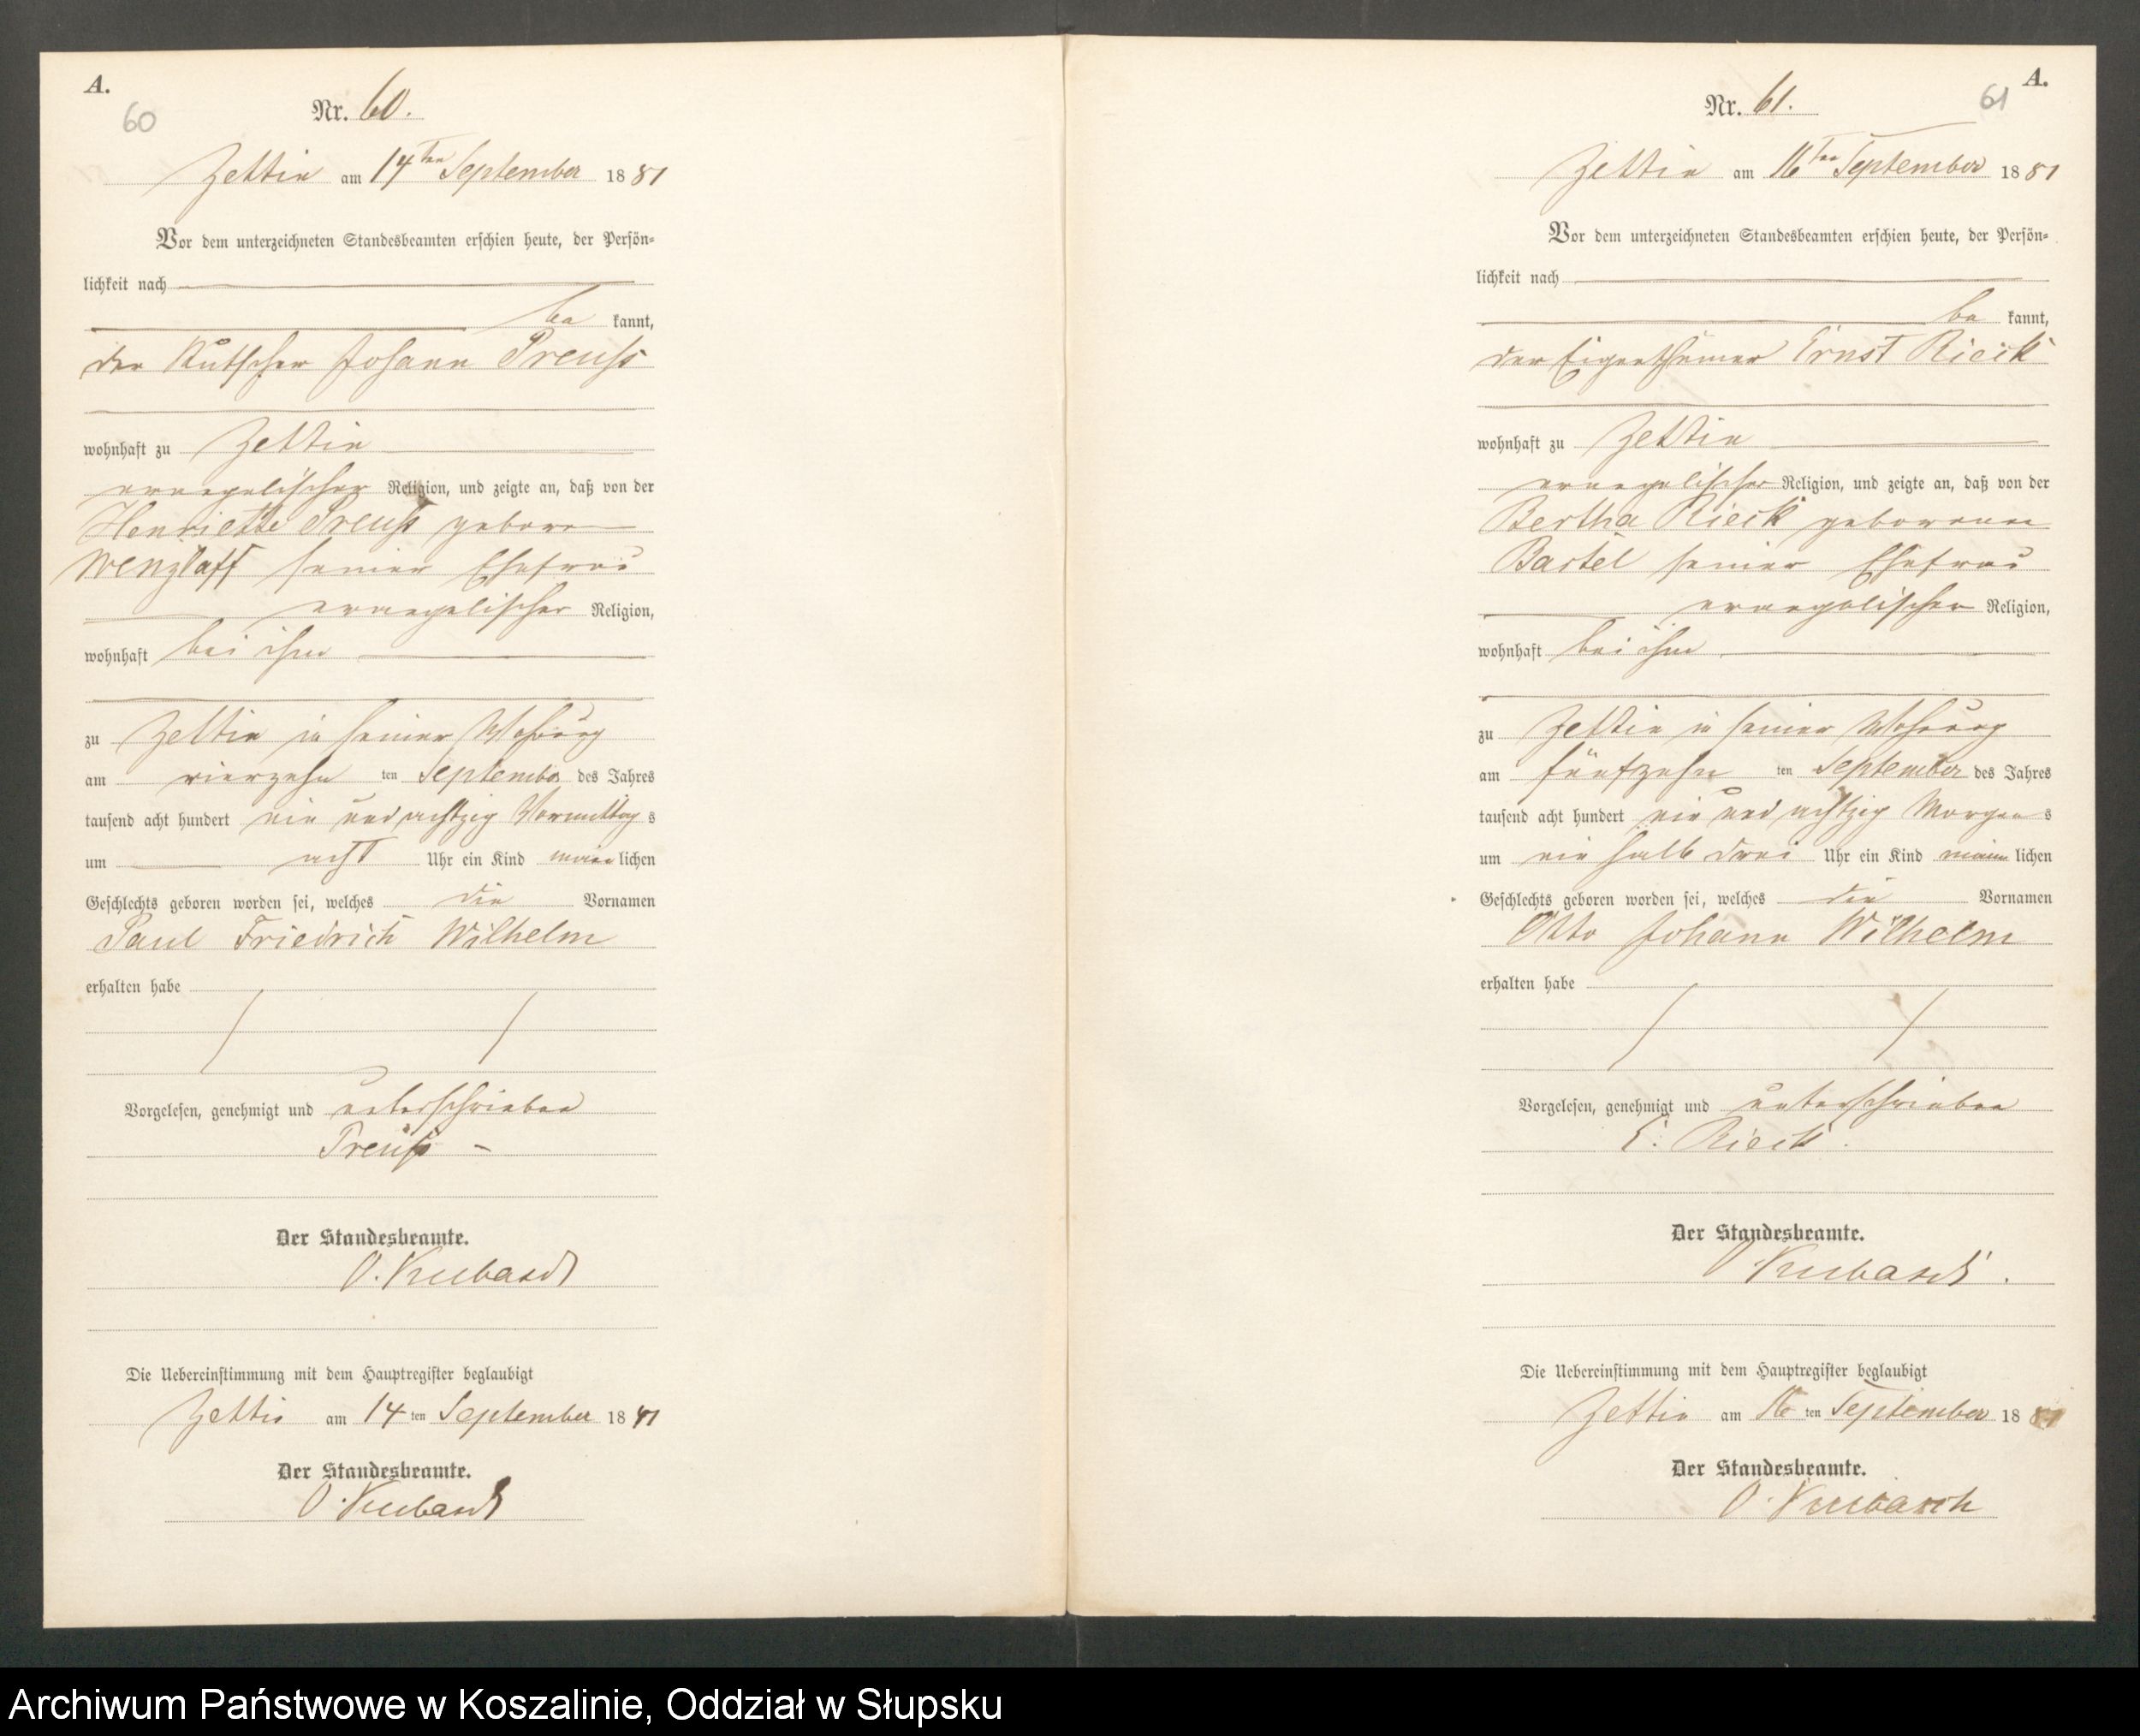 A.
60
Nr. 60.
Zettin am 14ten September 1881
Vor dem unterzeichneten Standesbeamten erschien heute, der Persön-
lichkeit nach
be kannt,
der Kutscher Johann Preuß
wohnhaft zu Zettin
evangelischer Religion, und zeigte an, daß von der
Henriette Preuß geborne
Wenzlaff seiner Ehefrau
evangelischer Religion,
wohnhaft bei ihm
zu Zettin in seiner Wohnung
am vierzehn ten September des Jahres
tausend acht hundert ein und achtzig Vormittag s
um acht Uhr ein Kind männ lichen
Geschlechts geboren worden sei, welches die Vornamen
Paul Friedrich Wilhelm
erhalten habe
Vorgelesen, genehmigt und unterschrieben
Preuß
Der Standesbeamte.
O.
Die Uebereinstimmung mit dem Hauptregister beglaubigt
Zettin am 14 ten September 1881
Der Standesbeamte.
O.
A.
61
Nr. 61.
Zettin am 16ten September 1881
Vor dem unterzeichneten Standesbeamten erschien heute, der Persön-
lichkeit nach
be kannt,
der Eigenthümer Ernst Rieck
wohnhaft zu Zettin
evangelischer Religion, und zeigte an, daß von der
Bertha Rieck geborenen
Bartel seiner Ehefrau
evangelischer Religion,
wohnhaft bei ihm
zu Zettin in seiner Wohnung
am fünfzehn ten September des Jahres
tausend acht hundert ein und achtzig Morgen s
um ein halb drei Uhr ein Kind männ lichen
Geschlechts geboren worden sei, welches die Vornamen
Otto Johann Wilhelm
erhalten habe
Vorgelesen, genehmigt und unterschrieben
E. Rieck.
Der Standesbeamte.
O
Die Uebereinstimmung mit dem Hauptregister beglaubigt
Zettin am 16 ten September 1881
Der Standesbeamte.
O.
Archiwum Państwowe w Koszalinie, Oddział w Słupsku